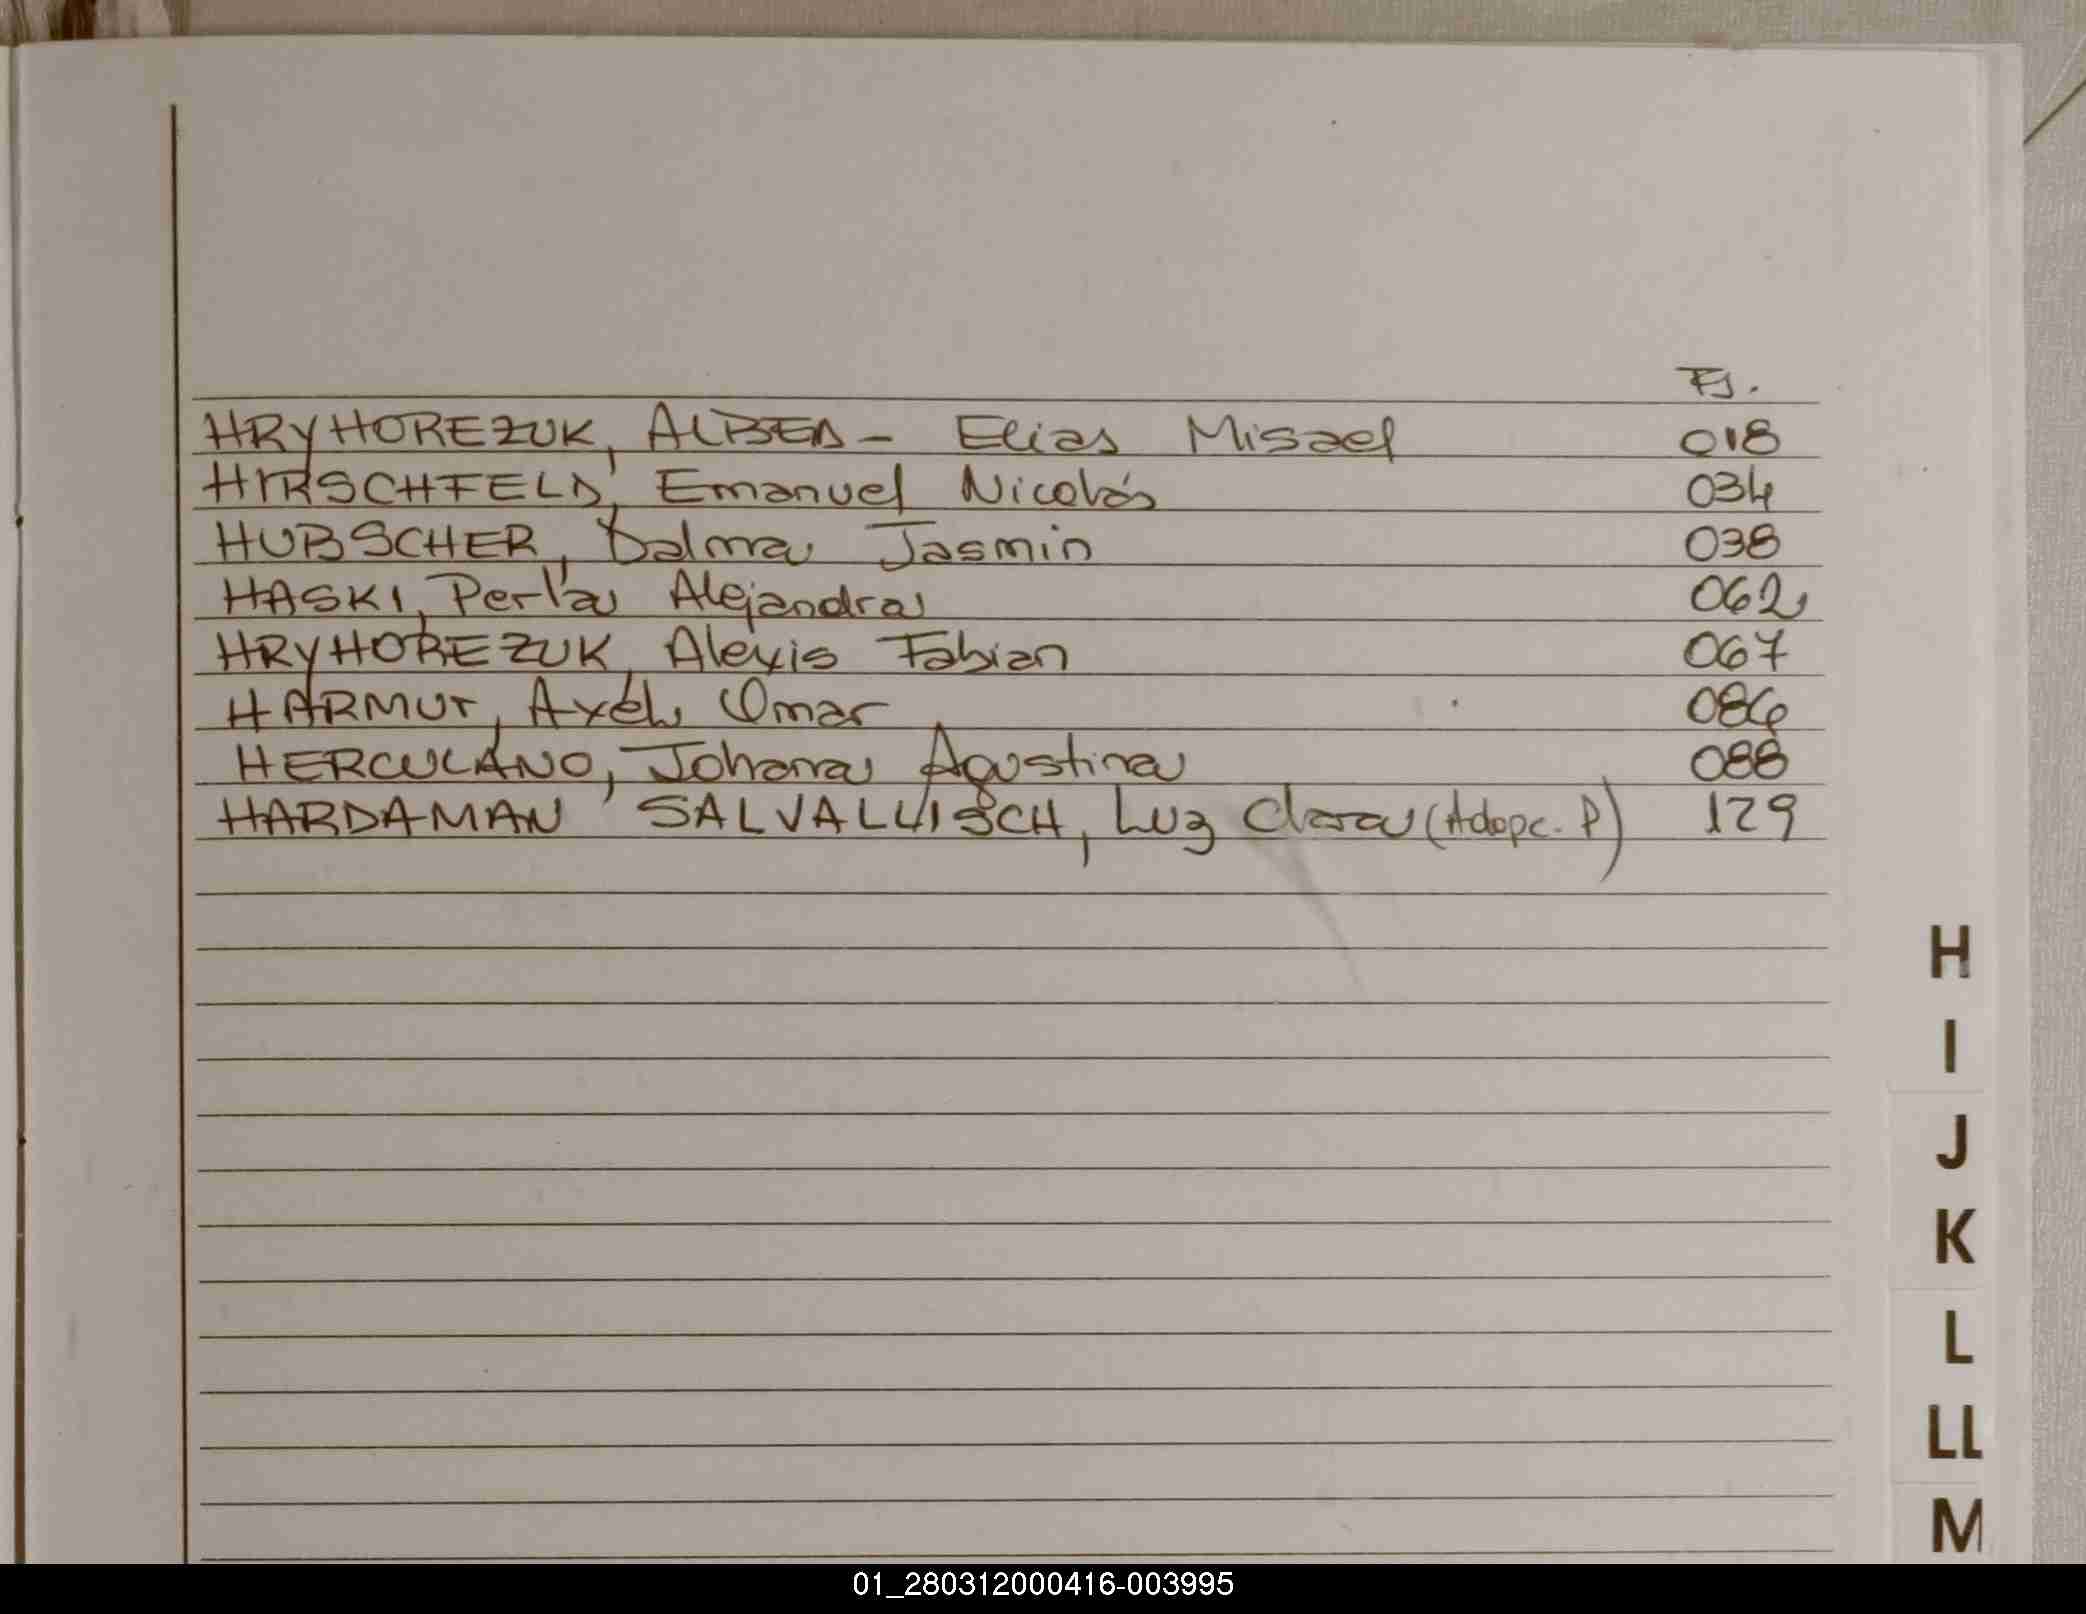 Fj.
HRYHOREZUK, ALBEA - Elias Misael 018
HIRSCHFELD, Emanuel Nicolás 034
HUBSCHER, Dalma Jasmin 038
HASKI, Perla Alejandra 062
HRYHOREZUK, Alexis Fabian 067
HARMUT, Axel Omar 086
HERCULANO, Johana Agustina 088
HARDAMAN SALVALLISCH, Luz Clara (Adopc. P) 129
H
I
J
K
L
LL
M
01_280312000416-003995